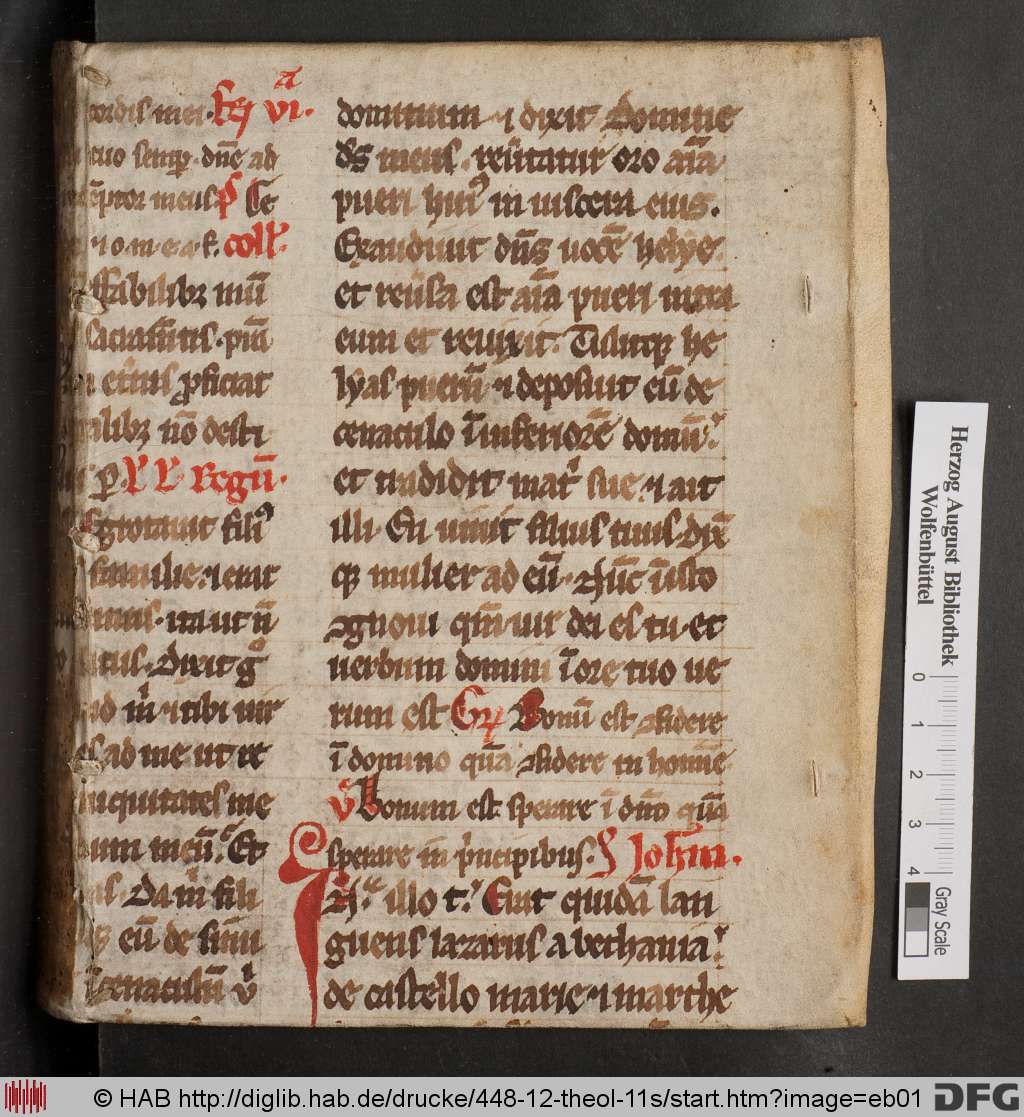 cordis mei. fe͛ vi.ᵃ
tuo semp̲. dn̄e ad
ceptor meus. p̄ Ce
⁊ o. m. e. a. f. coll̕.
ffabilibꝫ mūdū
sacramētis. p̄
etn̄is ꝓficiat
alibꝫ nō desti
ꝑ. Regū.
Egrotauit fili᷒
familie. ⁊ erat
itaut n̄
Dixit gͦ
m̄ ⁊ tibi uir
ad me ut re
iniquitates me
um meū. Et
Da m̄ fili
eū de sinu
cenaculū v̕
dominum ⁊ dixit Domine
ds̄ meus. reu̕tatur oro aīa
pueri hui᷒ in uiscera eius.
Exaudiuit dn̄s uocē helye.
et reu̕sa est aīa pueri intra
eum et reuixit. Tulitqꝫ he
lyas puerū ⁊ deposuit eū de
cenaculo ī inferiorē domū.
et tradidit mat̕ sue. ⁊ ait
illi. En uiuit filius tuus. dix̄
qꝫ mulier ad eū. Nūc ī isto
ꝯgnoui qm̄ uir dei es tu. et
uerbum domini ī ore tuo ue
rum est Gr̄ Bonū est ꝯfidere
ī domino quā ꝯfidere in homīe.
V̕ Bonum est sperare ī dn̄o quā
sperare in p̕ncipibus. S̕ Johm̄.
In illo t.̕ Erat quidā lan
guens lazarus a bethania.
de castello marie ⁊ marthe
Herzog August Bibliothek
Wolfenbüttel
0
1
2
3
4
Gray Scale
© HAB http://diglib.hab.de/drucke/448-12-theol-11s/start.htm?image=eb01
DFG